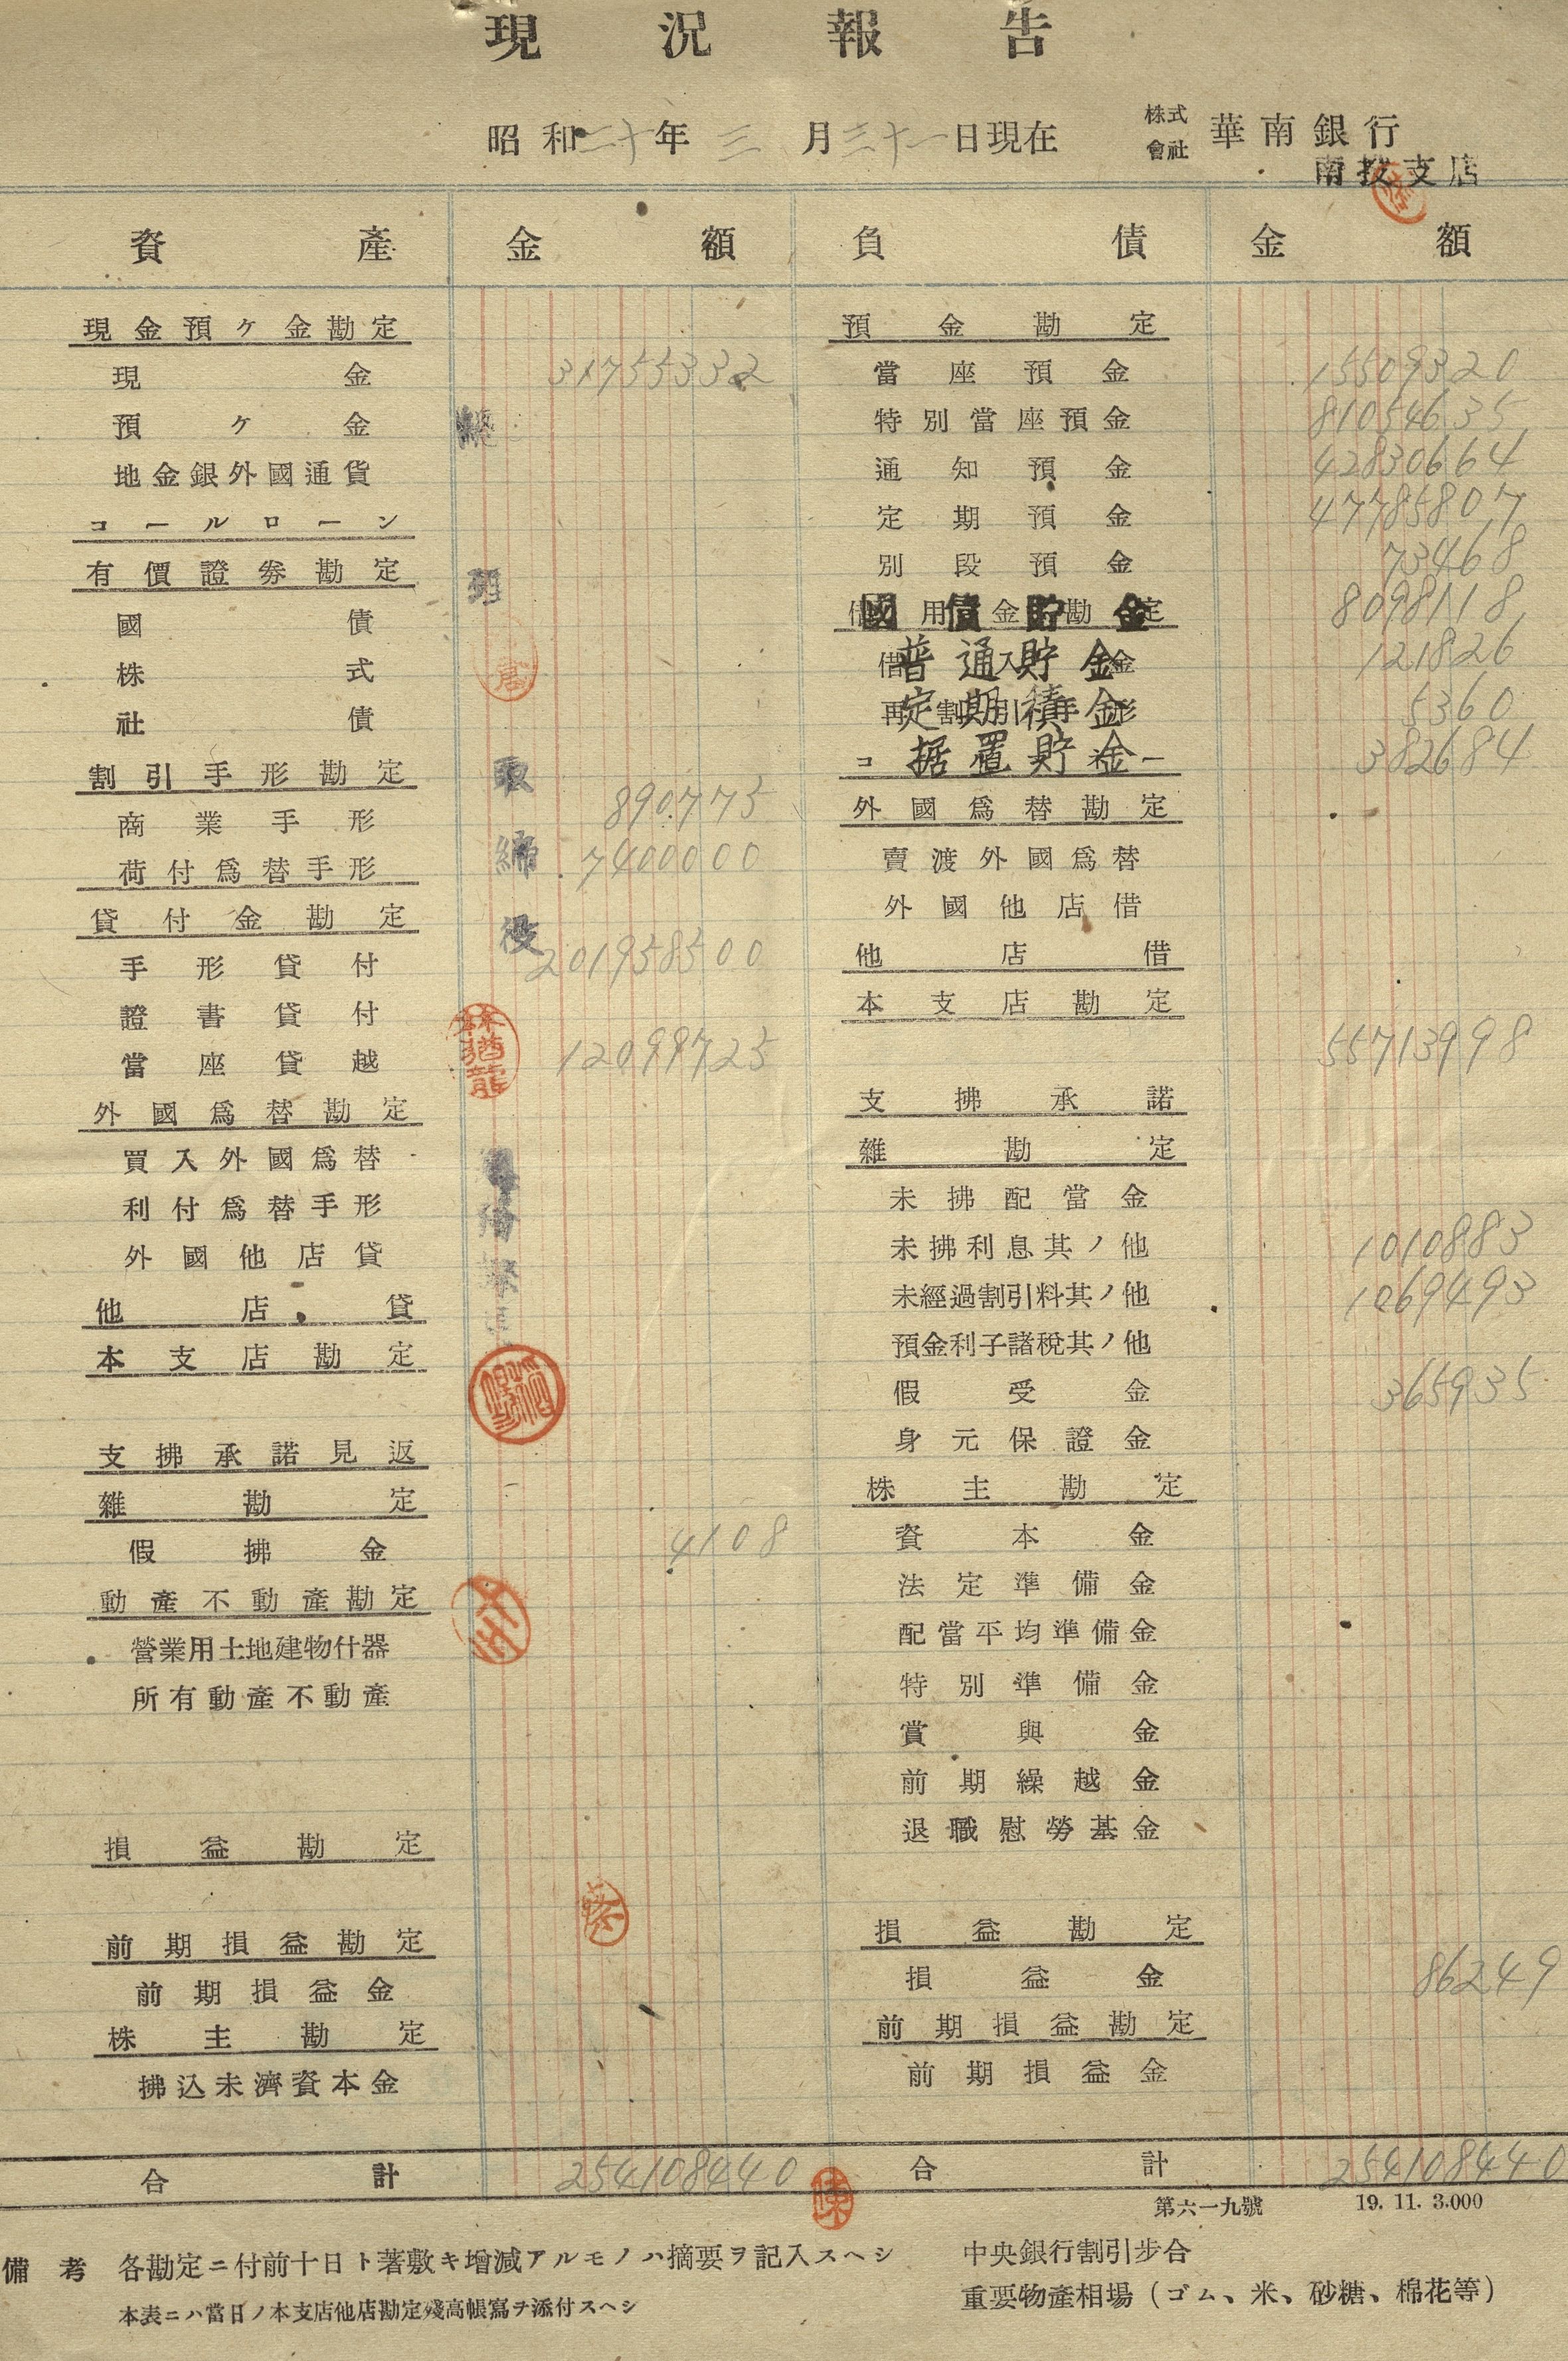 現況報告
昭和二十年三月三十一日現在
株式會社 華南銀行
南投支店
資產 金額 負債 金額
現金預ヶ金勘定
現金 31755332
預ヶ金
地金銀外國通貨
コールローン
有價證券勘定
國債
株式
社債
割引手形勘定
商業手形 890775
荷付爲替手形 7400000
貸付金勘定
手形貸付 201958500
證書貸付
當座貸越 12099725
外國爲替勘定
買入外國爲替
利付爲替手形
外國他店貸
他店貸
本支店勘定
支拂承諾見返
雜勘定
假拂金 4108
動產不動產勘定
營業用土地建物什器
所有動產不動產
損益勘定
前期損益勘定
前期損益金
株主勘定
拂込未濟資本金
合計 254108440
取締役
預金勘定
當座預金 15509320
特別當座預金 81054635
通知預金 42830664
定期預金 47785807
別段預金 73468
國債貯金 8098118
普通貯金 121826
定期積金 5360
据置貯金 382684
外國爲替勘定
賣渡外國爲替
外國他店借
他店借
本支店勘定
55713998
支拂承諾
雜勘定
未拂配當金
未拂利息其ノ他 1010883
未經過割引料其ノ他 1069493
預金利子諸稅其ノ他
假受金 365935
身元保證金
株主勘定
資本金
法定準備金
配當平均準備金
特別準備金
賞與金
前期繰越金
退職慰勞基金
損益勘定
損益金 86249
前期損益勘定
前期損益金
合計 254108440
第六一九號 19. 11. 3.000
備考 各勘定ニ付前十日ト著敷キ增減アルモノハ摘要ヲ記入スヘシ
本表ニハ當日ノ本支店他店勘定殘高帳寫ヲ添付スヘシ
中央銀行割引步合
重要物產相場(ゴム、米、砂糖、棉花等)